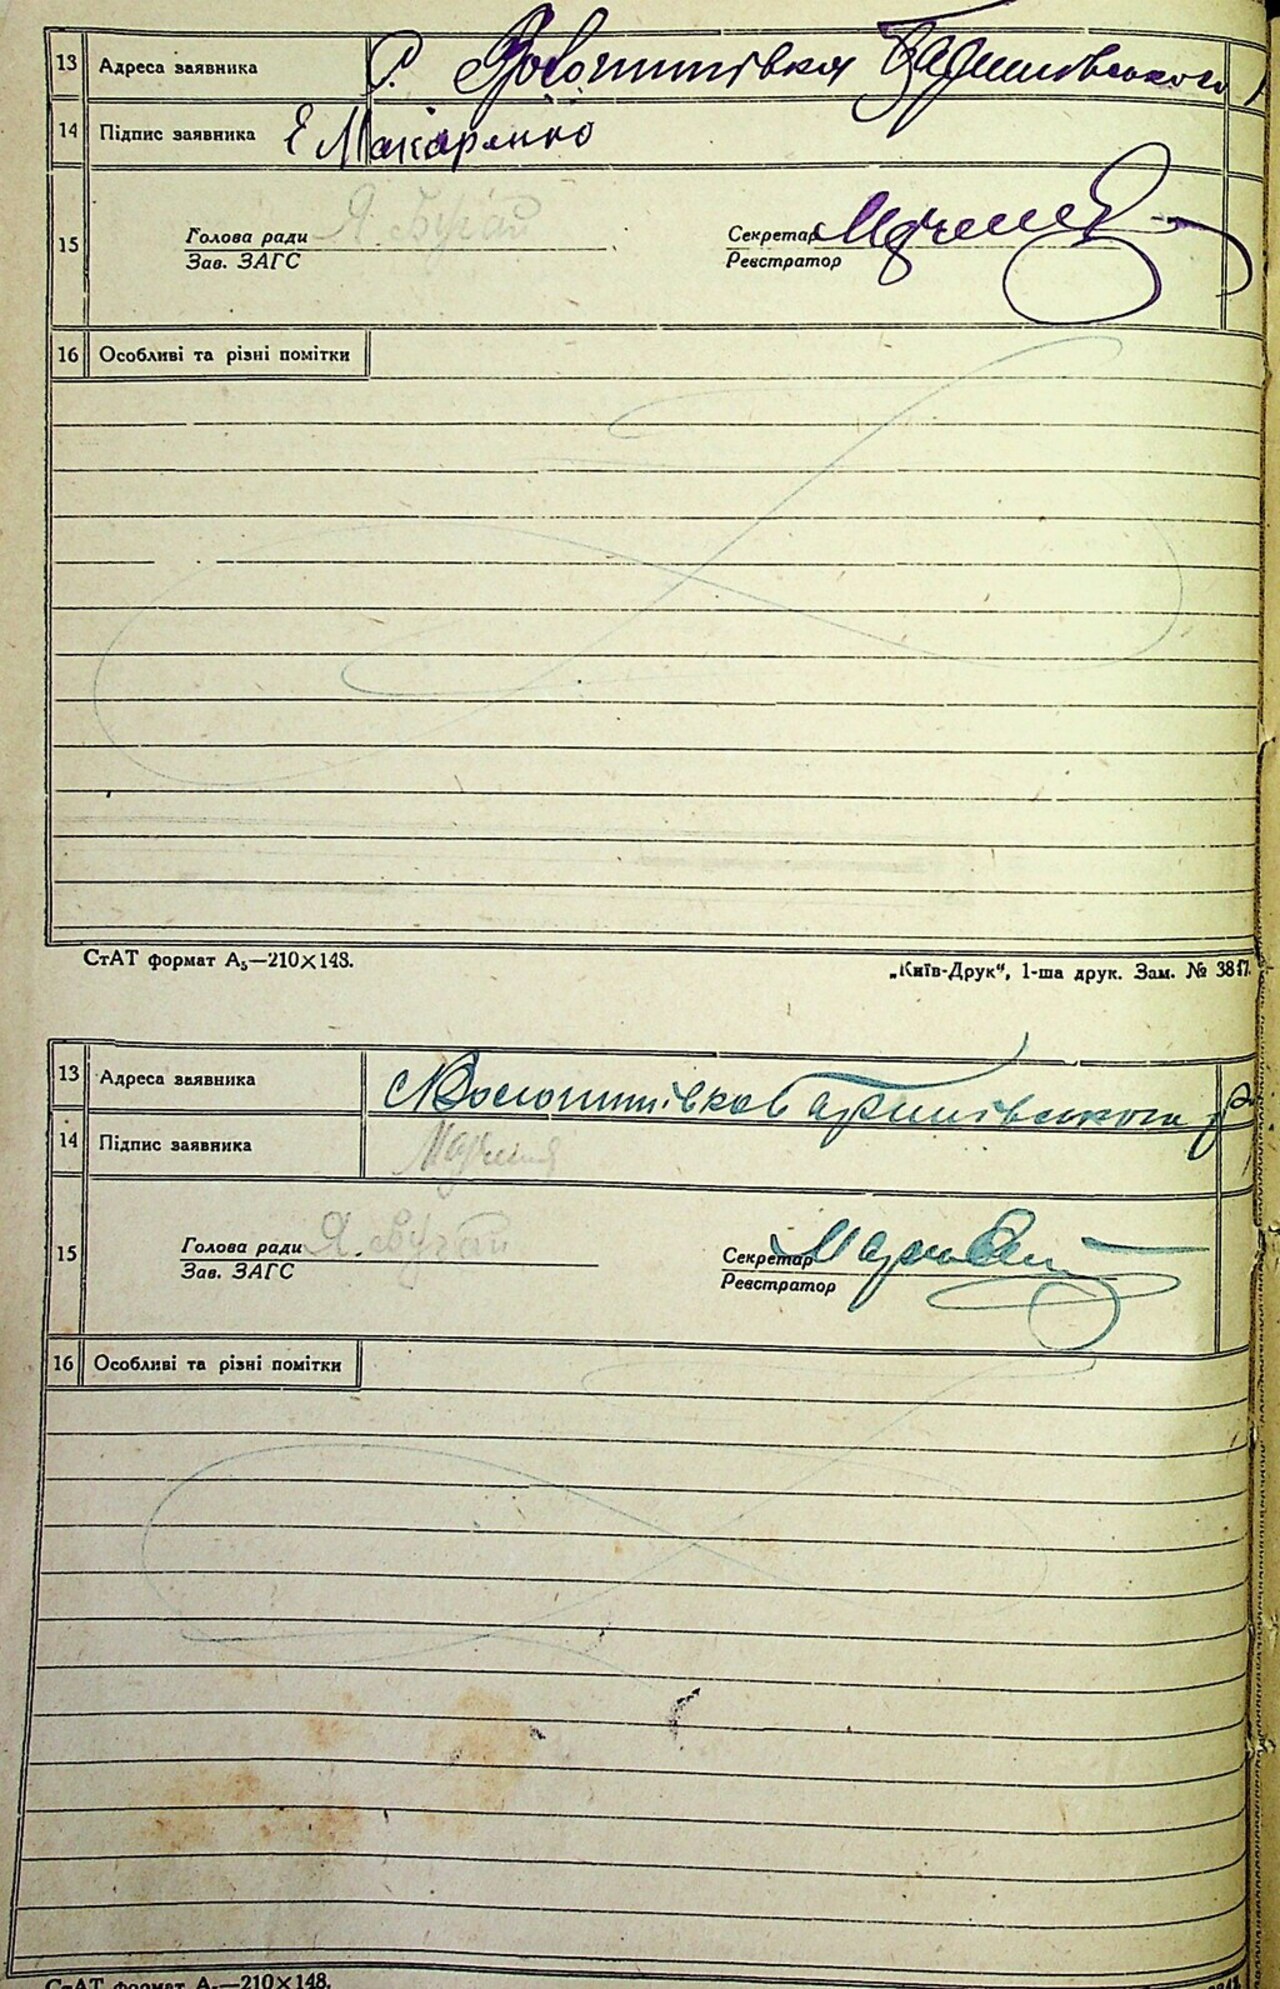 13 Адреса заявника с. Волошинівка Баришівського
14 Підпис заявника Є Макаренко
15 Голова ради Я. Бугай Секретар
Зав. ЗАГС Реєстратор
16 Особливі та різні помітки
СтАТ формат А₅—210×148.
„Київ-Друк“, 1-ша друк. Зам. № 3817.
13 Адреса заявника с Волошинівка Баришівського р
14 Підпис заявника
15 Голова ради Я. Бугай Секретар
Зав. ЗАГС Реєстратор
16 Особливі та різні помітки
СтАТ формат А₅—210×148.